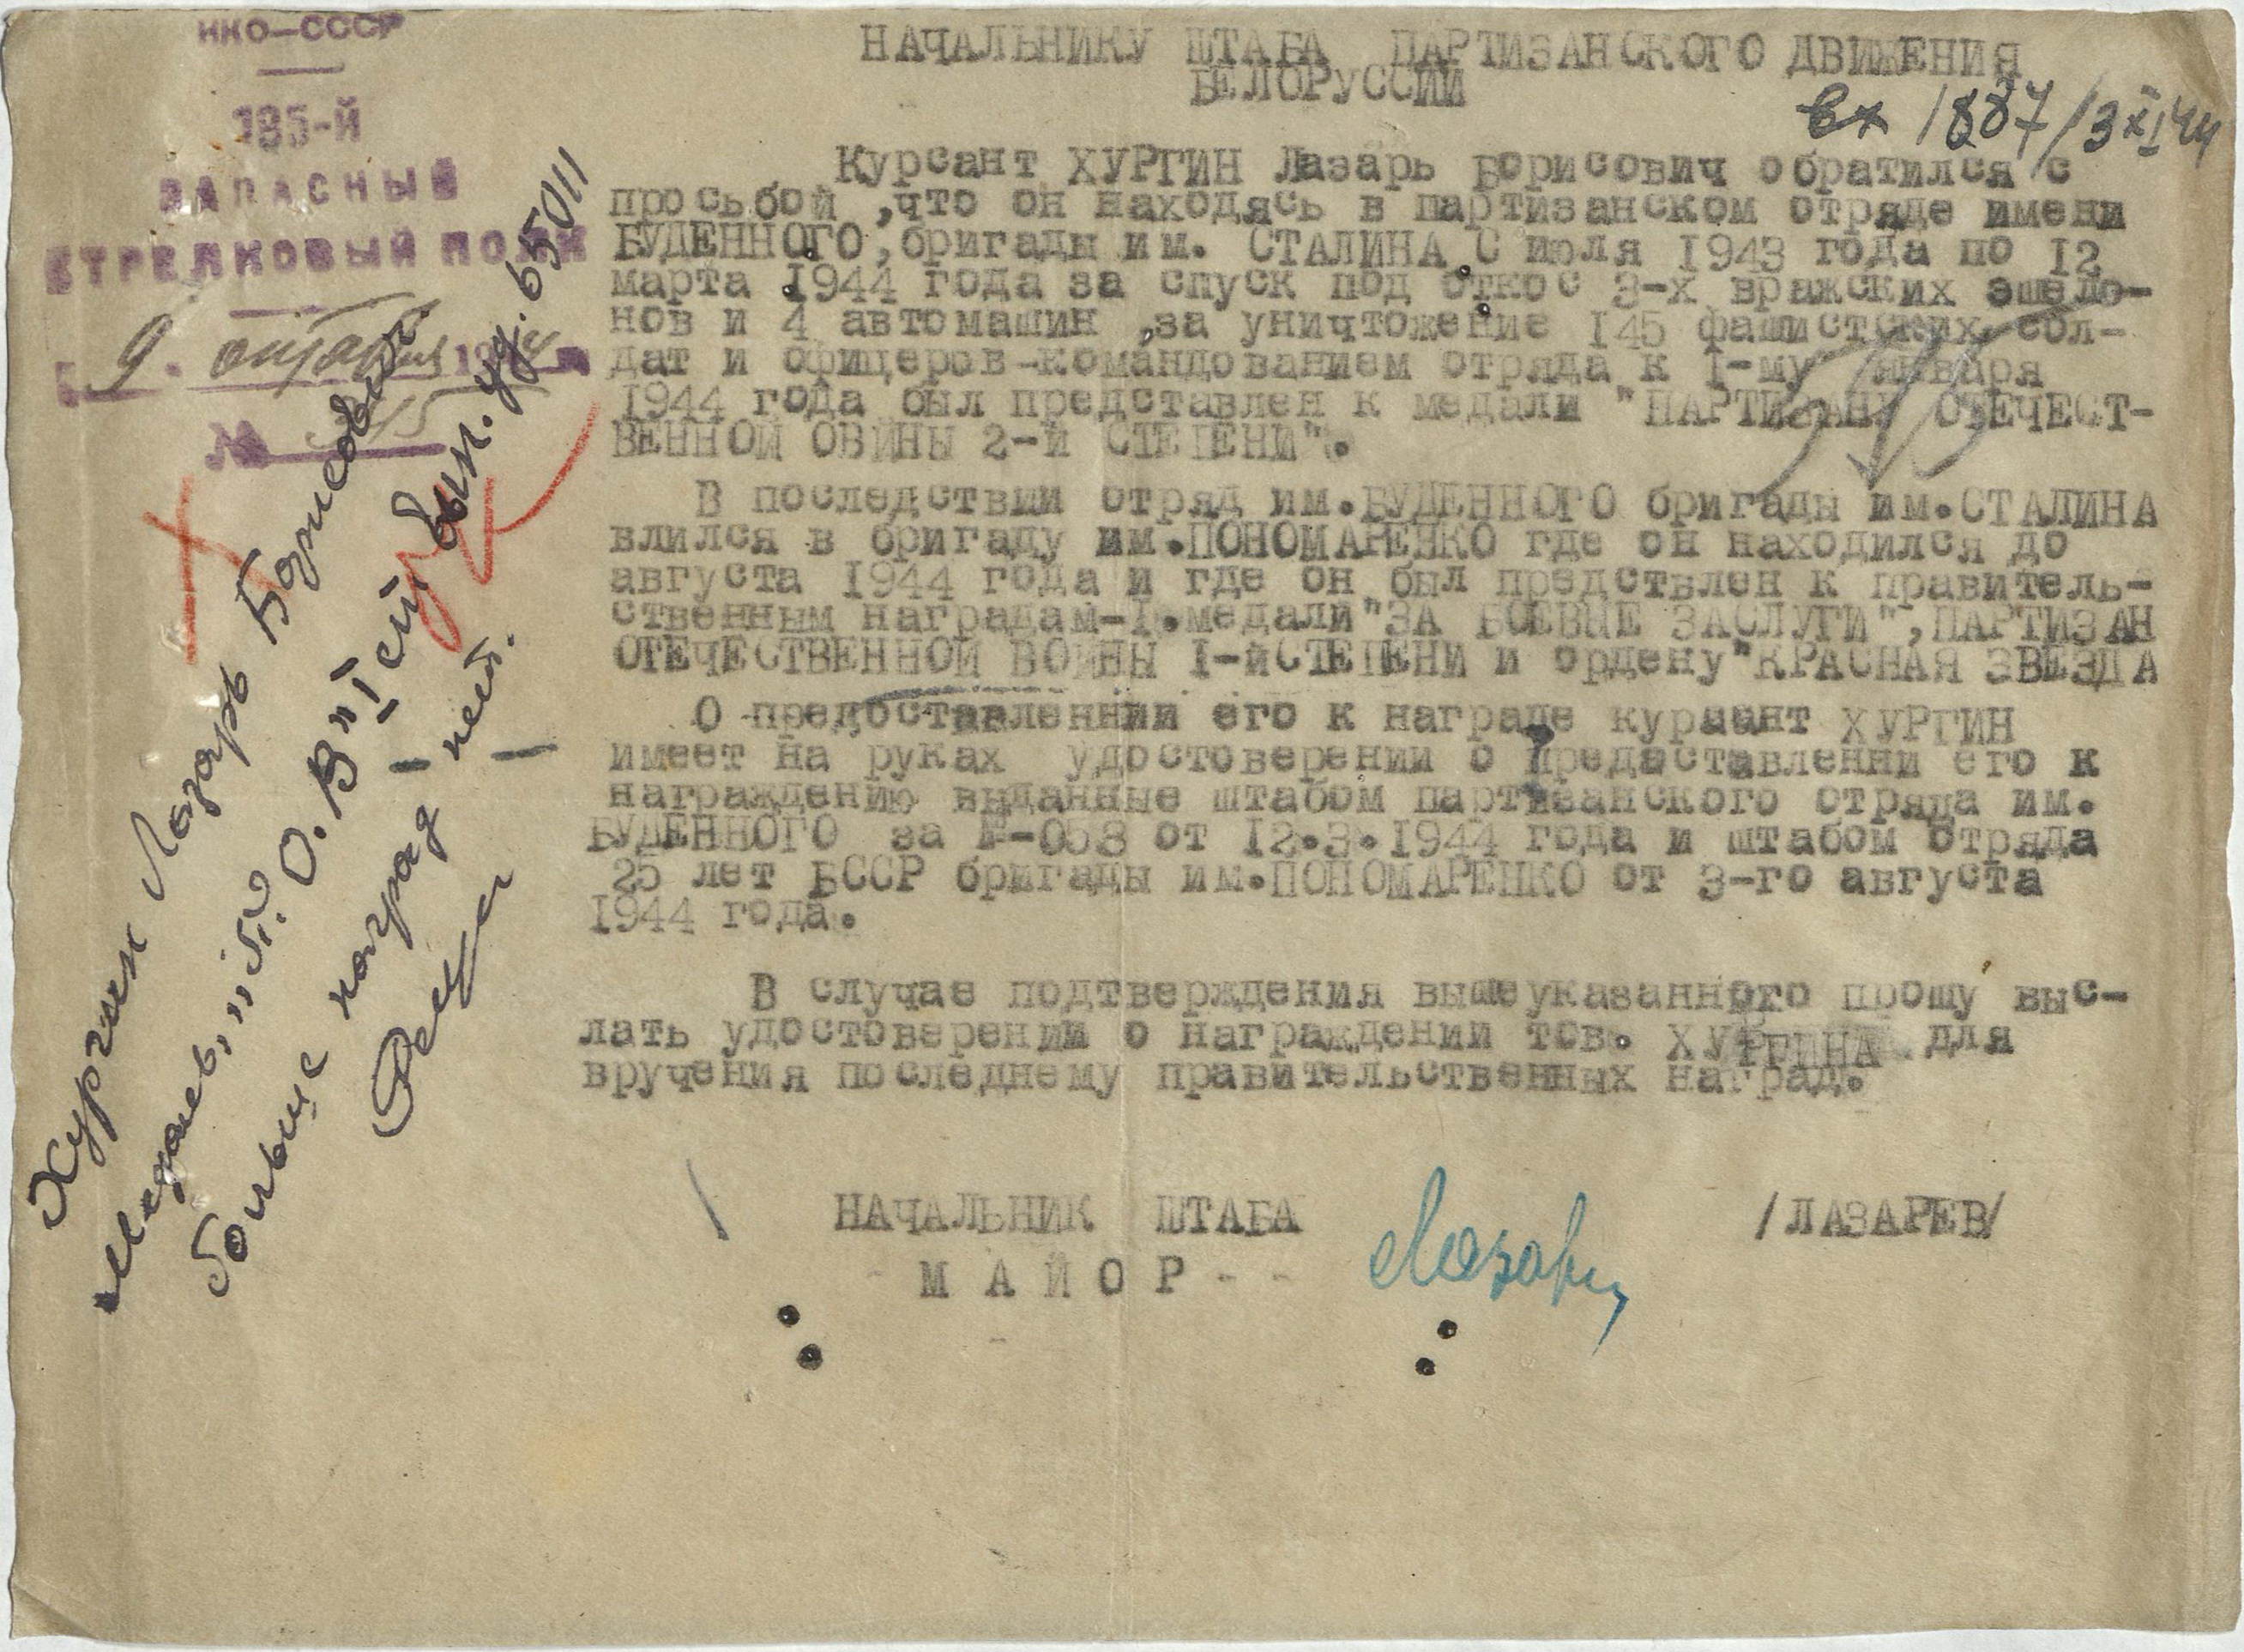 НКО—СССР
185-й
ЗАПАСНЫЙ
СТРЕЛКОВЫЙ ПОЛК
9. октября 1944 г.
№
НАЧАЛЬНИКУ ШТАБА ПАРТИЗАНСКОГО ДВИЖЕНИЯ
БЕЛОРУССИИ
вх 1887/3 XI 44
Курсант ХУРГИН Лазарь Борисович обратился с
просьбой ,что он находясь в партизанском отряде имени
БУДЕННОГО,бригады им. СТАЛИНА С июля 1943 года по 12
марта 1944 года за спуск под откос 3-х вражских эшело-
нов и 4 автомашин ,за уничтожение 145 фашистских сол-
дат и офицеров-командованием отряда к I-му января
1944 года был представлен к медали "ПАРТИЗАНУ ОТЕЧЕСТ-
ВЕННОЙ ОВЙНЫ 2-й СТЕПЕНИ".
В последствии отряд им.БУДЕННОГО бригады им.СТАЛИНА
влился в бригаду им.ПОНОМАРЕНКО где он находился до
августа 1944 года и где он был предствлен к правитель-
ственным наградам-I.медали"ЗА БОЕВЫЕ ЗАСЛУГИ",ПАРТИЗАН
ОТЕЧЕСТВЕННОЙ ВОЙНЫ I-йСТЕПЕНИ и ордену"КРАСНАЯ ЗВЕЗДА
О предоставленнии его к награде курсант ХУРГИН
имеет на руках удостоверении о предаставленни его к
награждению выданные штабом партизанского отряда им.
БУДЕННОГО за №-053 от 12.3.1944 года и штабом отряда
25 лет БССР бригады им.ПОНОМАРЕНКО от 3-го августа
1944 года.
В случае подтверждения вышеуказанного прошу выс-
лать удостоверении о награждении тов. ХУРГИНА для
вручения последнему правительственных наград.
НАЧАЛЬНИК ШТАБА /ЛАЗАРЕВ/
- МАЙОР - -
Хургин Лазарь Борисович
медаль „П. О. В" I ст вып. уд. 65011
больше наград нет.